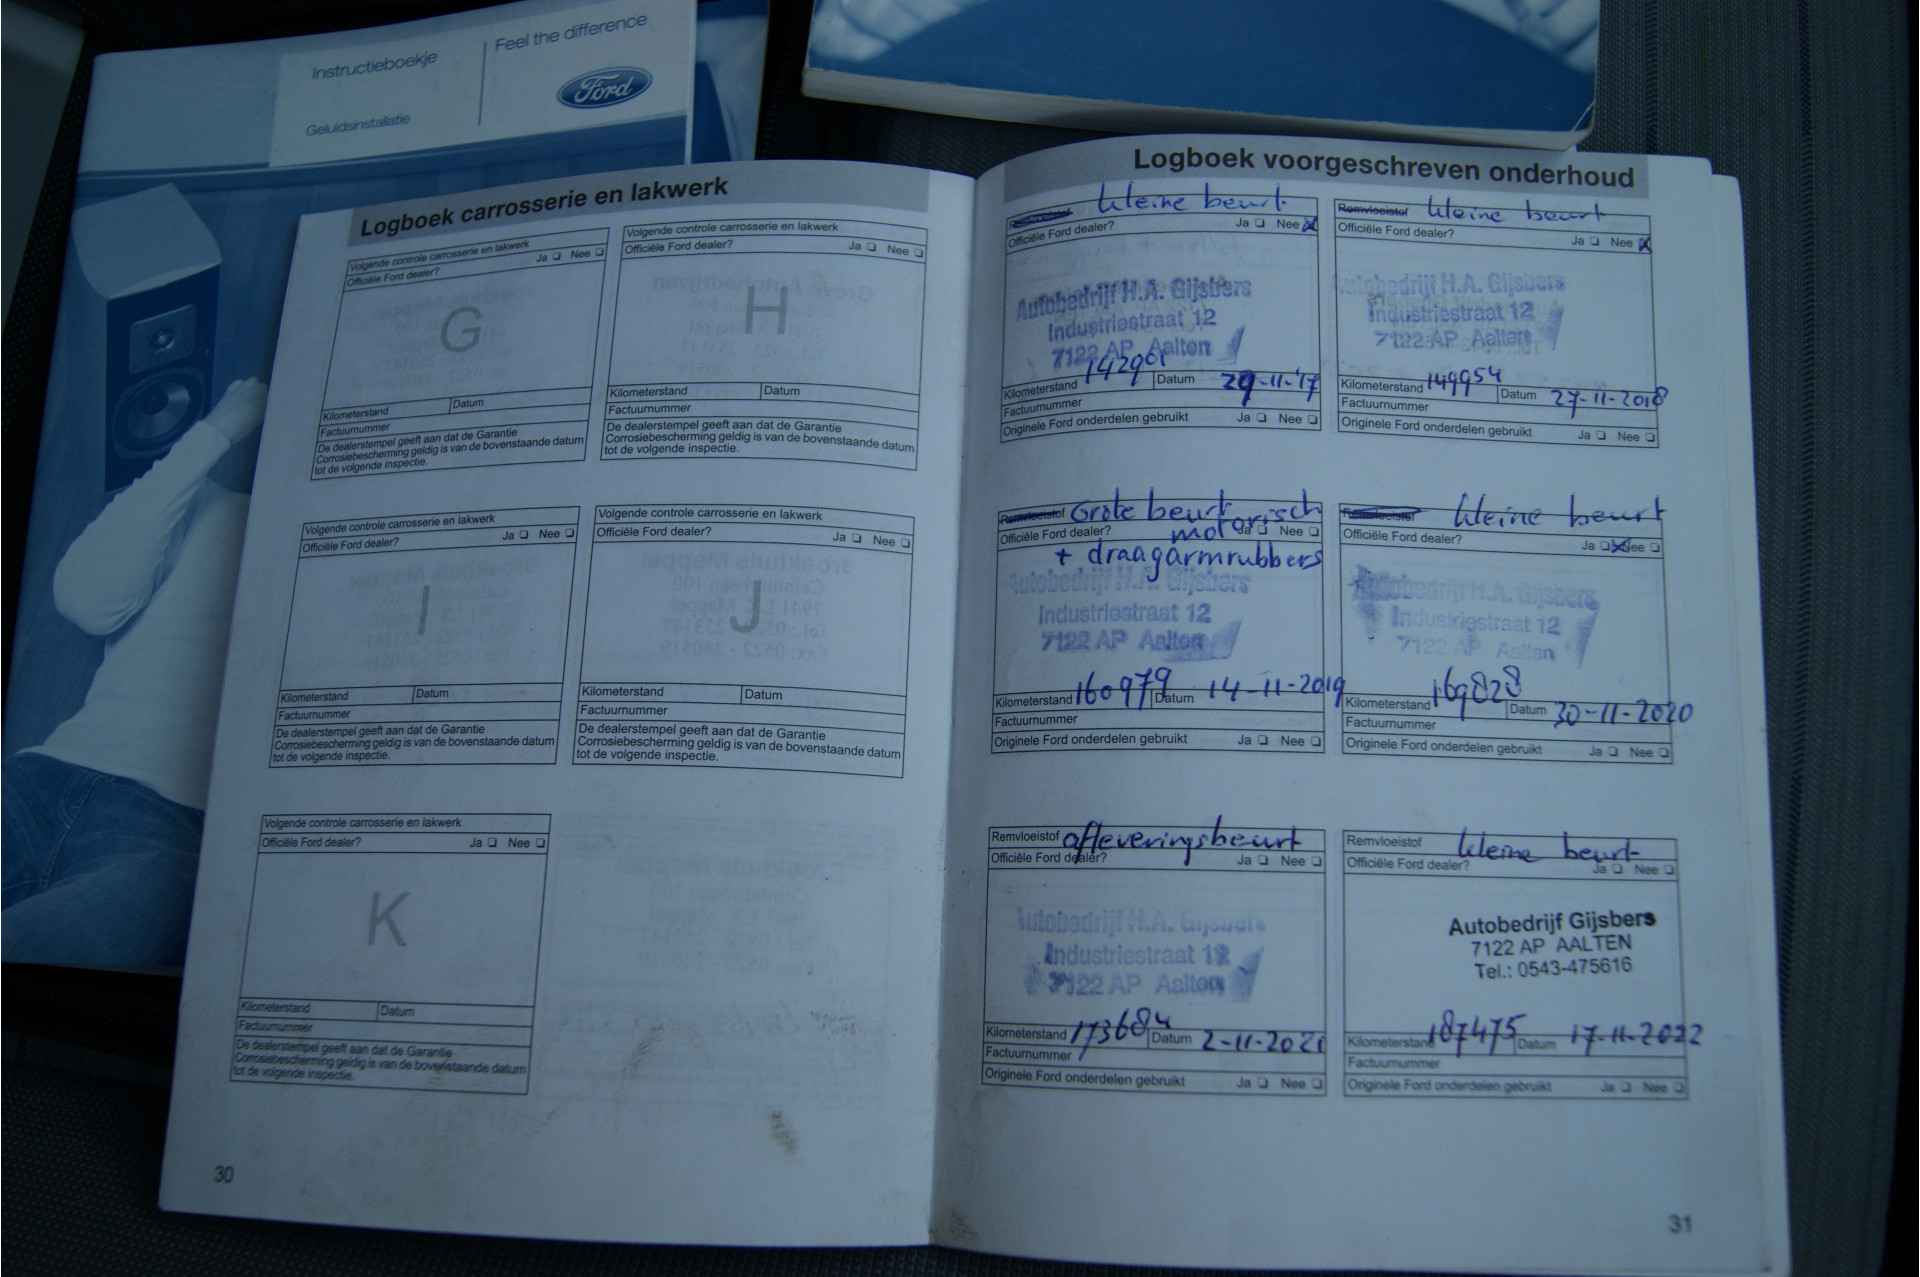 Instructieboekje
Geluidsinstallatie
Feel the difference
Ford
Logboek carrosserie en lakwerk
Volgende controle carrosserie en lakwerk
Officiële Ford dealer? Ja ❏ Nee ❏
G
Kilometerstand Datum
Factuurnummer
De dealerstempel geeft aan dat de Garantie
Corrosiebescherming geldig is van de bovenstaande datum
tot de volgende inspectie.
Volgende controle carrosserie en lakwerk
Officiële Ford dealer? Ja ❏ Nee ❏
H
Kilometerstand Datum
Factuurnummer
De dealerstempel geeft aan dat de Garantie
Corrosiebescherming geldig is van de bovenstaande datum
tot de volgende inspectie.
Volgende controle carrosserie en lakwerk
Officiële Ford dealer? Ja ❏ Nee ❏
I
Kilometerstand Datum
Factuurnummer
De dealerstempel geeft aan dat de Garantie
Corrosiebescherming geldig is van de bovenstaande datum
tot de volgende inspectie.
Volgende controle carrosserie en lakwerk
Officiële Ford dealer? Ja ❏ Nee ❏
J
Kilometerstand Datum
Factuurnummer
De dealerstempel geeft aan dat de Garantie
Corrosiebescherming geldig is van de bovenstaande datum
tot de volgende inspectie.
Volgende controle carrosserie en lakwerk
Officiële Ford dealer? Ja ❏ Nee ❏
K
Kilometerstand Datum
Factuurnummer
De dealerstempel geeft aan dat de Garantie
Corrosiebescherming geldig is van de bovenstaande datum
tot de volgende inspectie.
30
Logboek voorgeschreven onderhoud
kleine beurt
Officiële Ford dealer? Ja ❏ Nee ☒
Autobedrijf H.A. Gijsbers
Industriestraat 12
7122 AP Aalten
Kilometerstand 142901 Datum 29-11-'17
Factuurnummer
Originele Ford onderdelen gebruikt Ja ❏ Nee ❏
Remvloeistof kleine beurt
Officiële Ford dealer? Ja ❏ Nee ☒
Autobedrijf H.A. Gijsbers
Industriestraat 12
7122 AP Aalten
Kilometerstand 149954 Datum 27-11-2018
Factuurnummer
Originele Ford onderdelen gebruikt Ja ❏ Nee ❏
Remvloeistof Grote beurt
motorisch
Officiële Ford dealer? Ja ❏ Nee ❏
+ draagarmrubbers
Autobedrijf H.A. Gijsbers
Industriestraat 12
7122 AP Aalten
Kilometerstand 160979 Datum 14-11-2019
Factuurnummer
Originele Ford onderdelen gebruikt Ja ❏ Nee ❏
Remvloeistof kleine beurt
Officiële Ford dealer? Ja ❏ Nee ❏
Autobedrijf H.A. Gijsbers
Industriestraat 12
7122 AP Aalten
Kilometerstand 169828 Datum 30-11-2020
Factuurnummer
Originele Ford onderdelen gebruikt Ja ❏ Nee ❏
Remvloeistof afleveringsbeurt
Officiële Ford dealer? Ja ❏ Nee ❏
Autobedrijf H.A. Gijsbers
Industriestraat 12
7122 AP Aalten
Kilometerstand 173684 Datum 2-11-2021
Factuurnummer
Originele Ford onderdelen gebruikt Ja ❏ Nee ❏
Remvloeistof kleine beurt
Officiële Ford dealer? Ja ❏ Nee ❏
Autobedrijf Gijsbers
7122 AP AALTEN
Tel.: 0543-475616
Kilometerstand 187475 Datum 17-11-2022
Factuurnummer
Originele Ford onderdelen gebruikt Ja ❏ Nee ❏
31